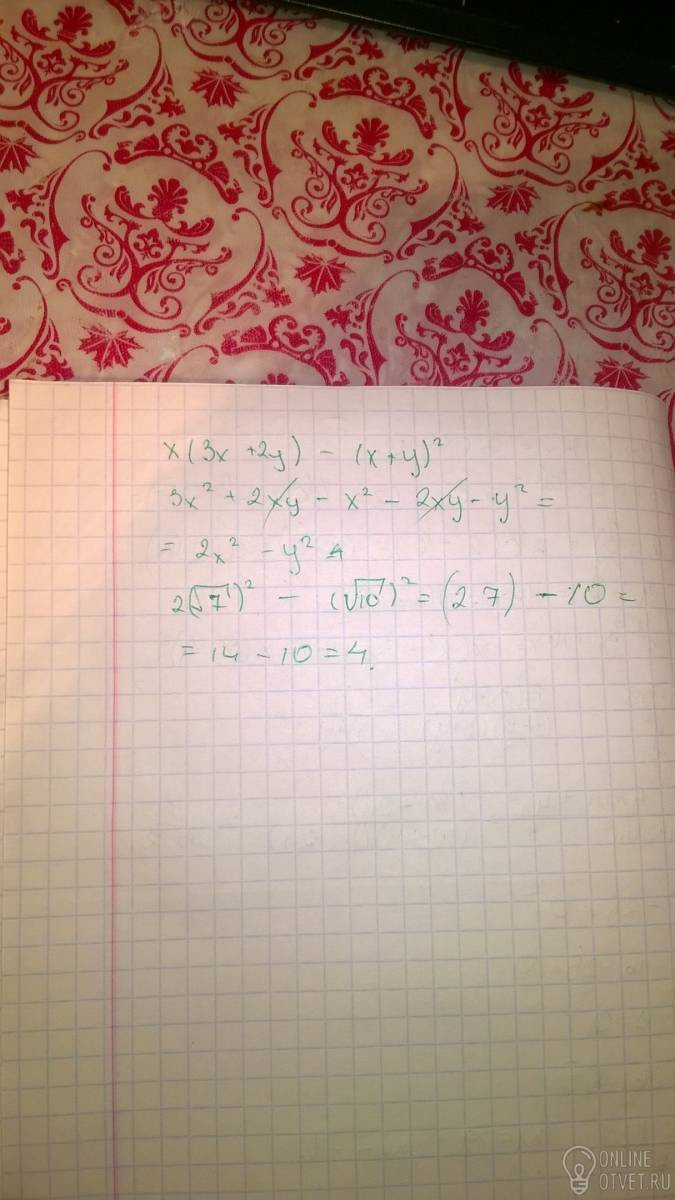 x(3x +2y) - (x+y)²
3x² + 2xy - x² - 2xy - y² =
= 2x² - y²
2(√7)² - (√10)² = (2·7) - 10 =
= 14 - 10 = 4.
ONLINE
OTVET.RU